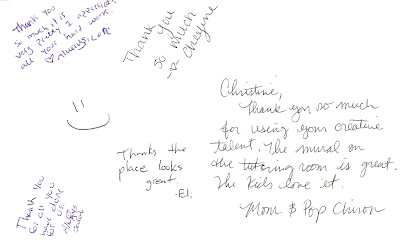 Thank you
so much, it is
very pretty I appreciate
all your hard work.
always,
Thank you
so much
Cheyine
Christine,
Thank you so much
for using your creative
talent. The mural on
the tutoring room is great.
The kids love it.
Mom & Pop Chiron
Thanks the
place looks
great.
-Eli
Thank you
for all you
have done
for us.